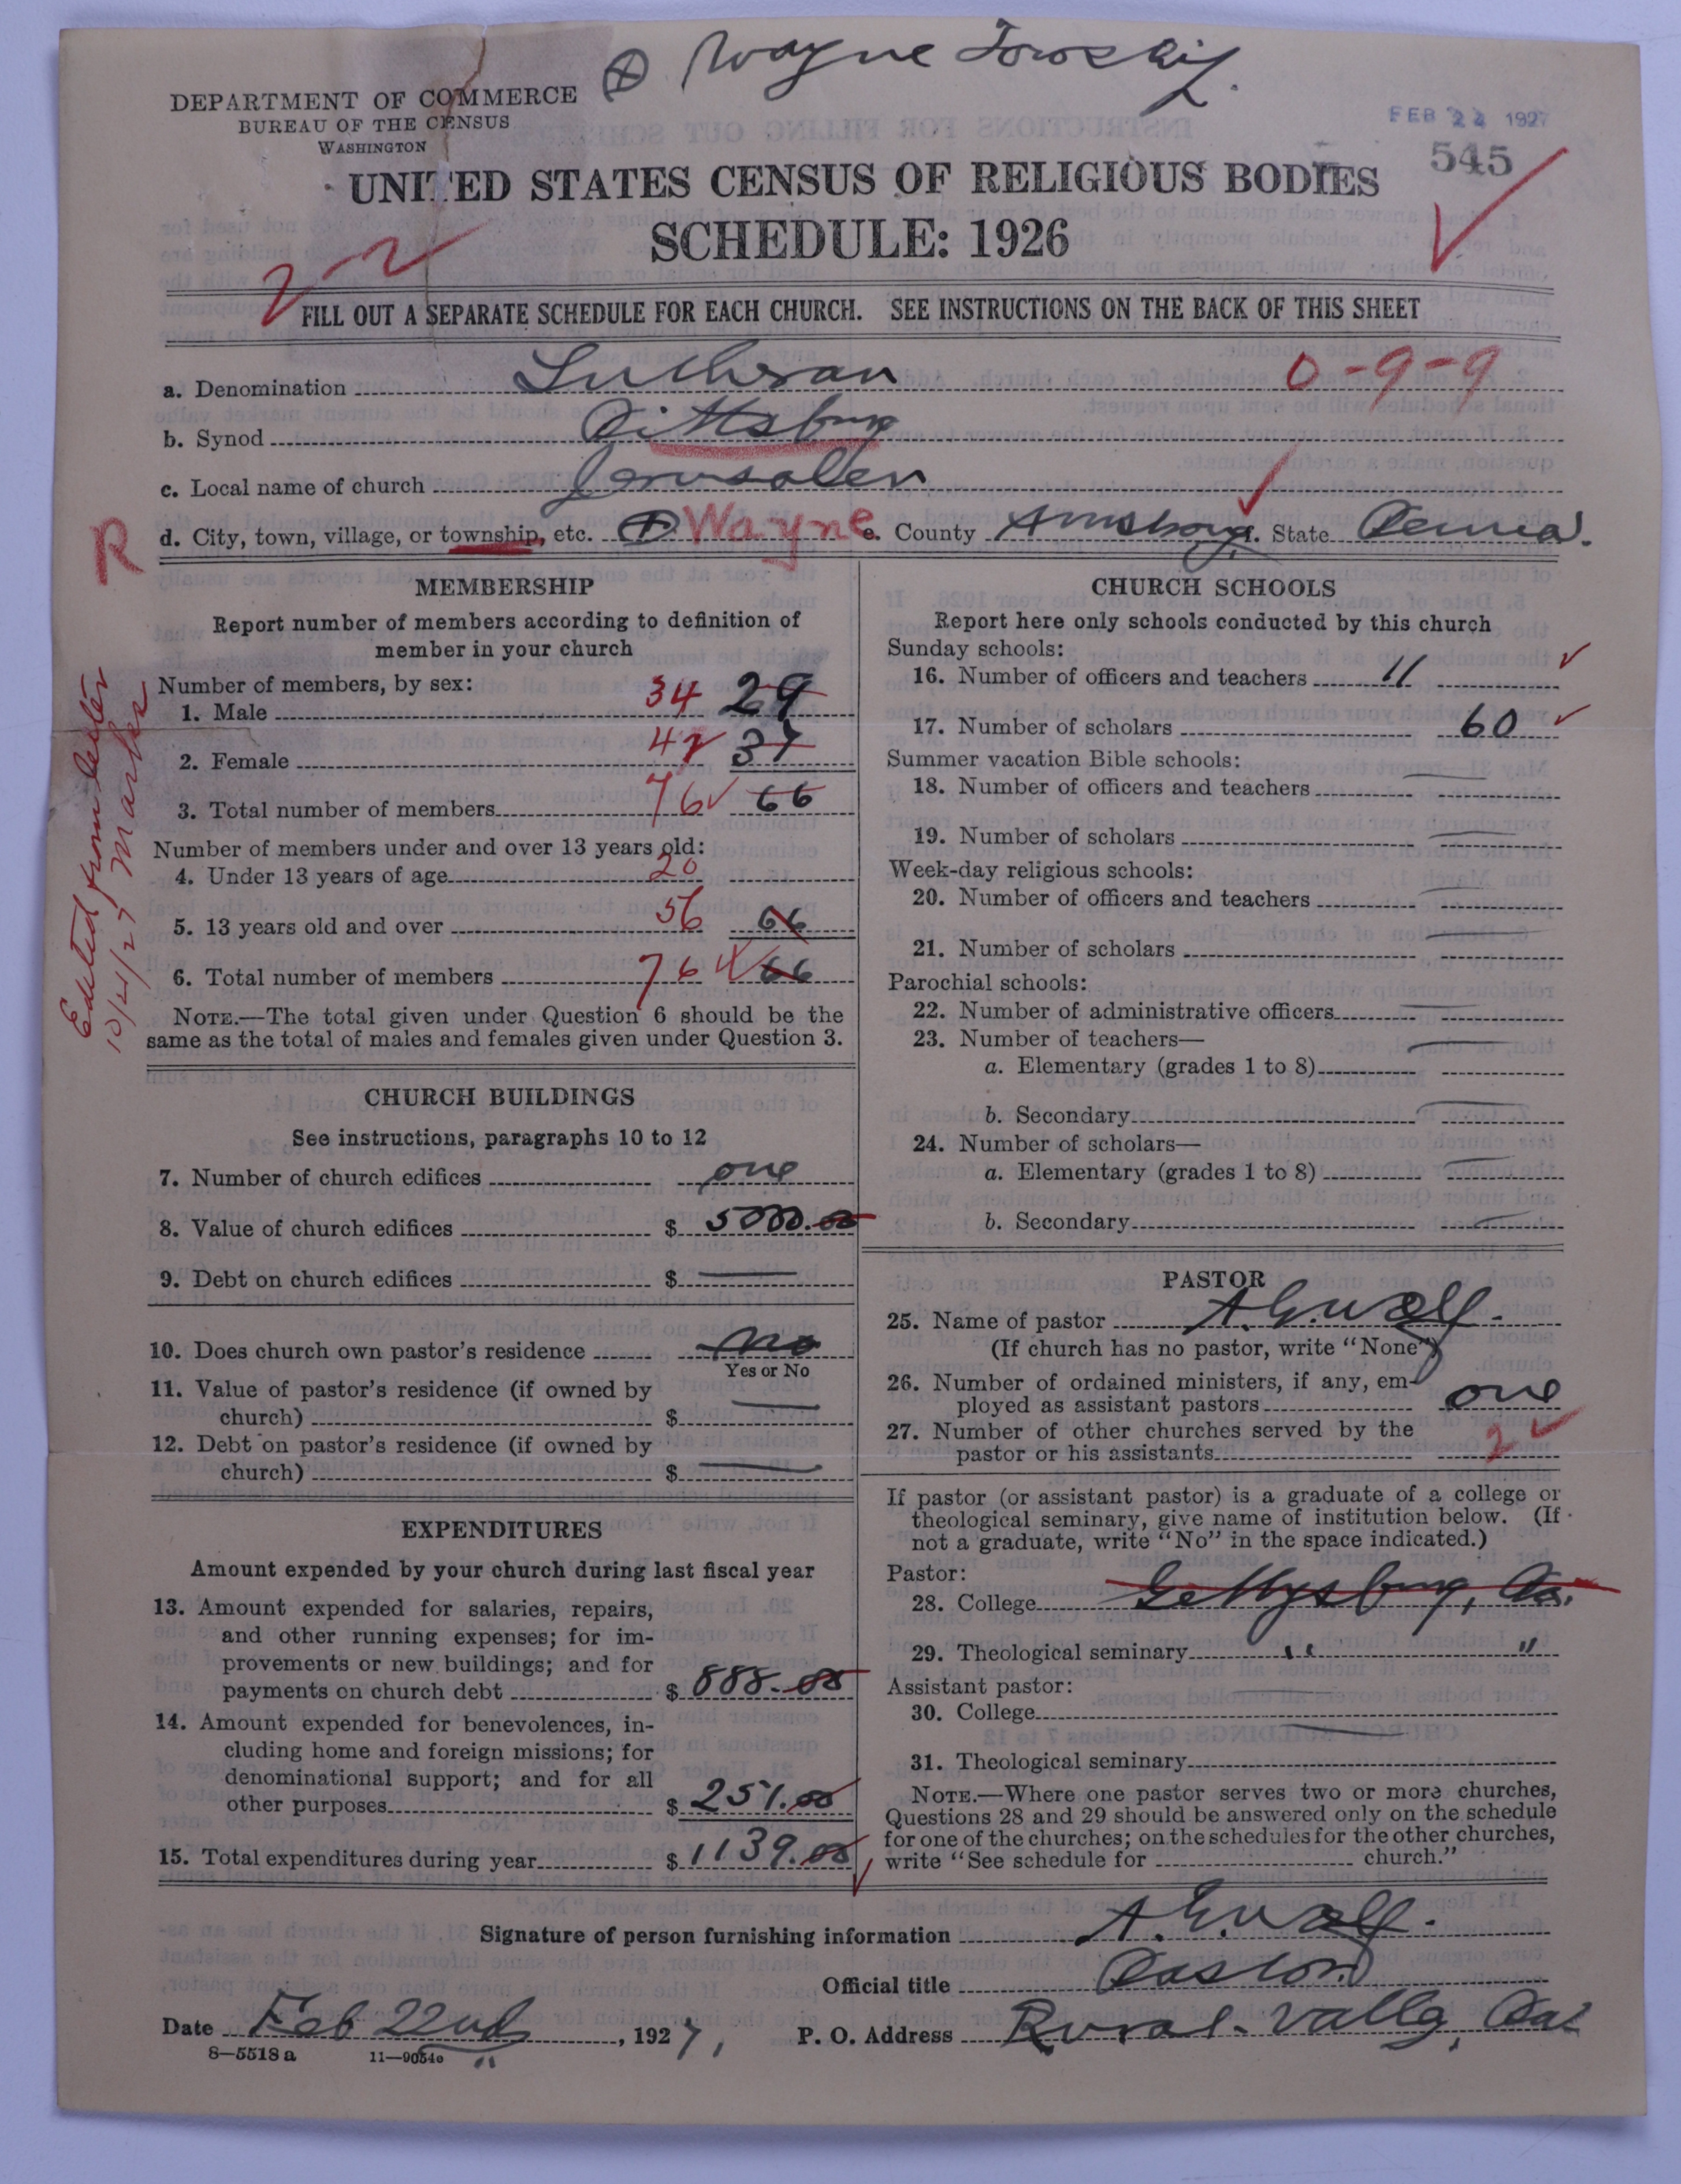 ⊕ Wayne Township.
DEPARTMENT OF COMMERCE
BUREAU OF THE CENSUS
WASHINGTON
FEB 24 1927
545
UNITED STATES CENSUS OF RELIGIOUS BODIES
SCHEDULE: 1926
FILL OUT A SEPARATE SCHEDULE FOR EACH CHURCH. SEE INSTRUCTIONS ON THE BACK OF THIS SHEET
a. Denomination Lutheran 0-9-9
b. Synod Pittsburg
c. Local name of church Jerusalem
R d. City, town, village, or township, etc. ⊕ Wayne e. County Armstrong. State Penna.
Edited from letter
10/4/27 Marks
MEMBERSHIP
Report number of members according to definition of
member in your church
Number of members, by sex:
1. Male 34 29
2. Female 42 37
3. Total number of members 76 ✓ 66
Number of members under and over 13 years old:
4. Under 13 years of age 20
5. 13 years old and over 56 66
6. Total number of members 76 ✓ 66
NOTE.—The total given under Question 6 should be the
same as the total of males and females given under Question 3.
CHURCH BUILDINGS
See instructions, paragraphs 10 to 12
7. Number of church edifices one
8. Value of church edifices $ 5000.00
9. Debt on church edifices $ —
10. Does church own pastor's residence no
Yes or No
11. Value of pastor's residence (if owned by
church) $ —
12. Debt on pastor's residence (if owned by
church) $ —
EXPENDITURES
Amount expended by your church during last fiscal year
13. Amount expended for salaries, repairs,
and other running expenses; for im-
provements or new buildings; and for
payments on church debt $ 888.00
14. Amount expended for benevolences, in-
cluding home and foreign missions; for
denominational support; and for all
other purposes $ 251.00
15. Total expenditures during year $ 1139.00
CHURCH SCHOOLS
Report here only schools conducted by this church
Sunday schools:
16. Number of officers and teachers 11 ✓
17. Number of scholars 60 ✓
Summer vacation Bible schools:
18. Number of officers and teachers —
19. Number of scholars —
Week-day religious schools:
20. Number of officers and teachers —
21. Number of scholars —
Parochial schools:
22. Number of administrative officers —
23. Number of teachers—
a. Elementary (grades 1 to 8) —
b. Secondary —
24. Number of scholars—
a. Elementary (grades 1 to 8) —
b. Secondary —
PASTOR
25. Name of pastor
(If church has no pastor, write "None")
26. Number of ordained ministers, if any, em-
ployed as assistant pastors one
27. Number of other churches served by the
pastor or his assistants 2 ✓
If pastor (or assistant pastor) is a graduate of a college or
theological seminary, give name of institution below. (If
not a graduate, write "No" in the space indicated.)
Pastor:
28. College Gettysburg, Pa.
29. Theological seminary " "
Assistant pastor:
30. College —
31. Theological seminary —
NOTE.—Where one pastor serves two or more churches,
Questions 28 and 29 should be answered only on the schedule
for one of the churches; on the schedules for the other churches,
write "See schedule for church."
Signature of person furnishing information
Official title Pastor
Date Feb 22nd, 1927, P. O. Address Rural Valley, Pa.
8—5518 a 11—9054a